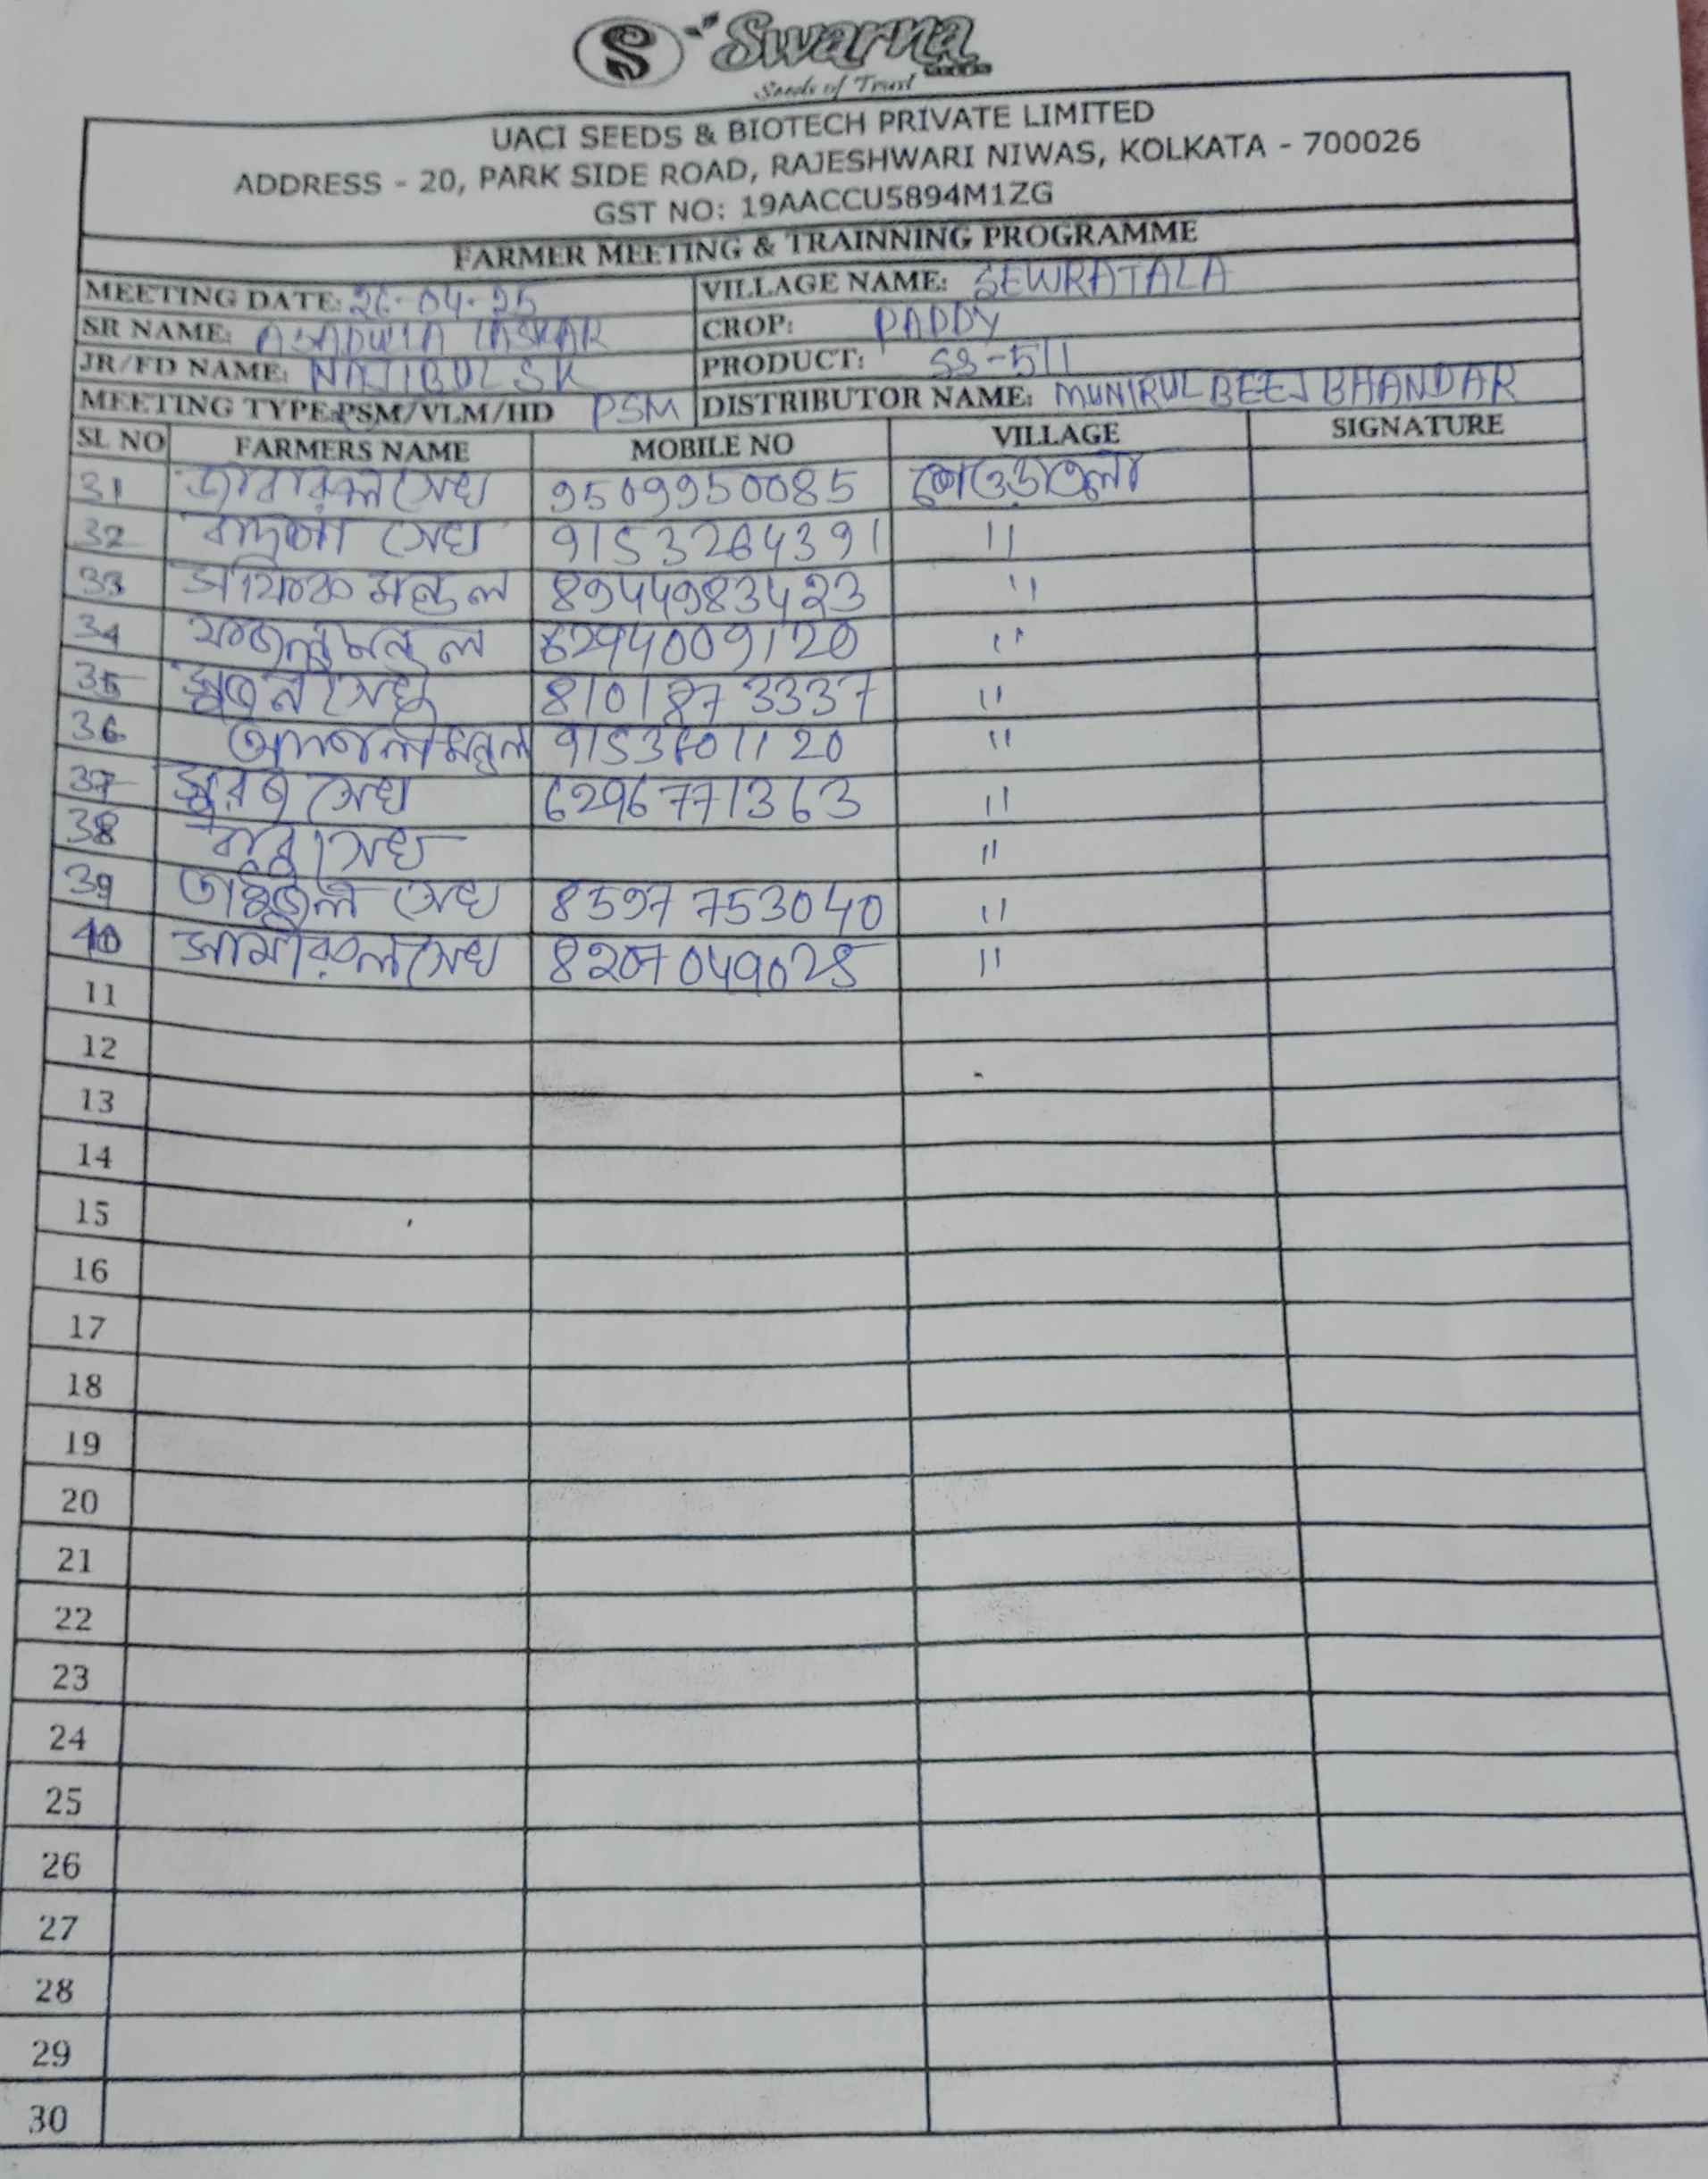 Swarna
Seeds of Trust
UACI SEEDS & BIOTECH PRIVATE LIMITED
ADDRESS - 20, PARK SIDE ROAD, RAJESHWARI NIWAS, KOLKATA - 700026
GST NO: 19AACCU5894M1ZG
FARMER MEETING & TRAINNING PROGRAMME
MEETING DATE: 26-04-25 VILLAGE NAME: SEWRATALA
SR NAME: LASKAR CROP: PADDY
JR/FD NAME: NAJIBUL SK PRODUCT: SS-511
MEETING TYPE:PSM/VLM/HD PSM DISTRIBUTOR NAME: MUNIRUL BEEJ BHANDAR
SL NO FARMERS NAME MOBILE NO VILLAGE SIGNATURE
31 সেখ 9509950085
32 সেখ 9153264391 "
33 মন্ডল 8944983423 "
34 মন্ডল 6294009120 "
35 সেখ 8101873337 "
36 মন্ডল "
37 সুরজ সেখ 6296771363 "
38 সেখ "
39 সেখ 8597753040 "
40 সামীরুল সেখ 8207049028 "
11
12
13
14
15
16
17
18
19
20
21
22
23
24
25
26
27
28
29
30